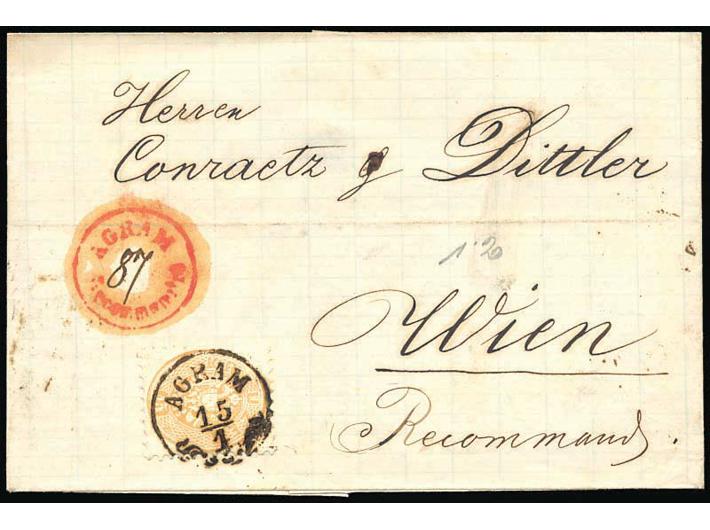 Herren
Conraetz & Dittler
AGRAM
87
Recommandirt
1·20
Wien
AGRAM
15
1
Recommand.